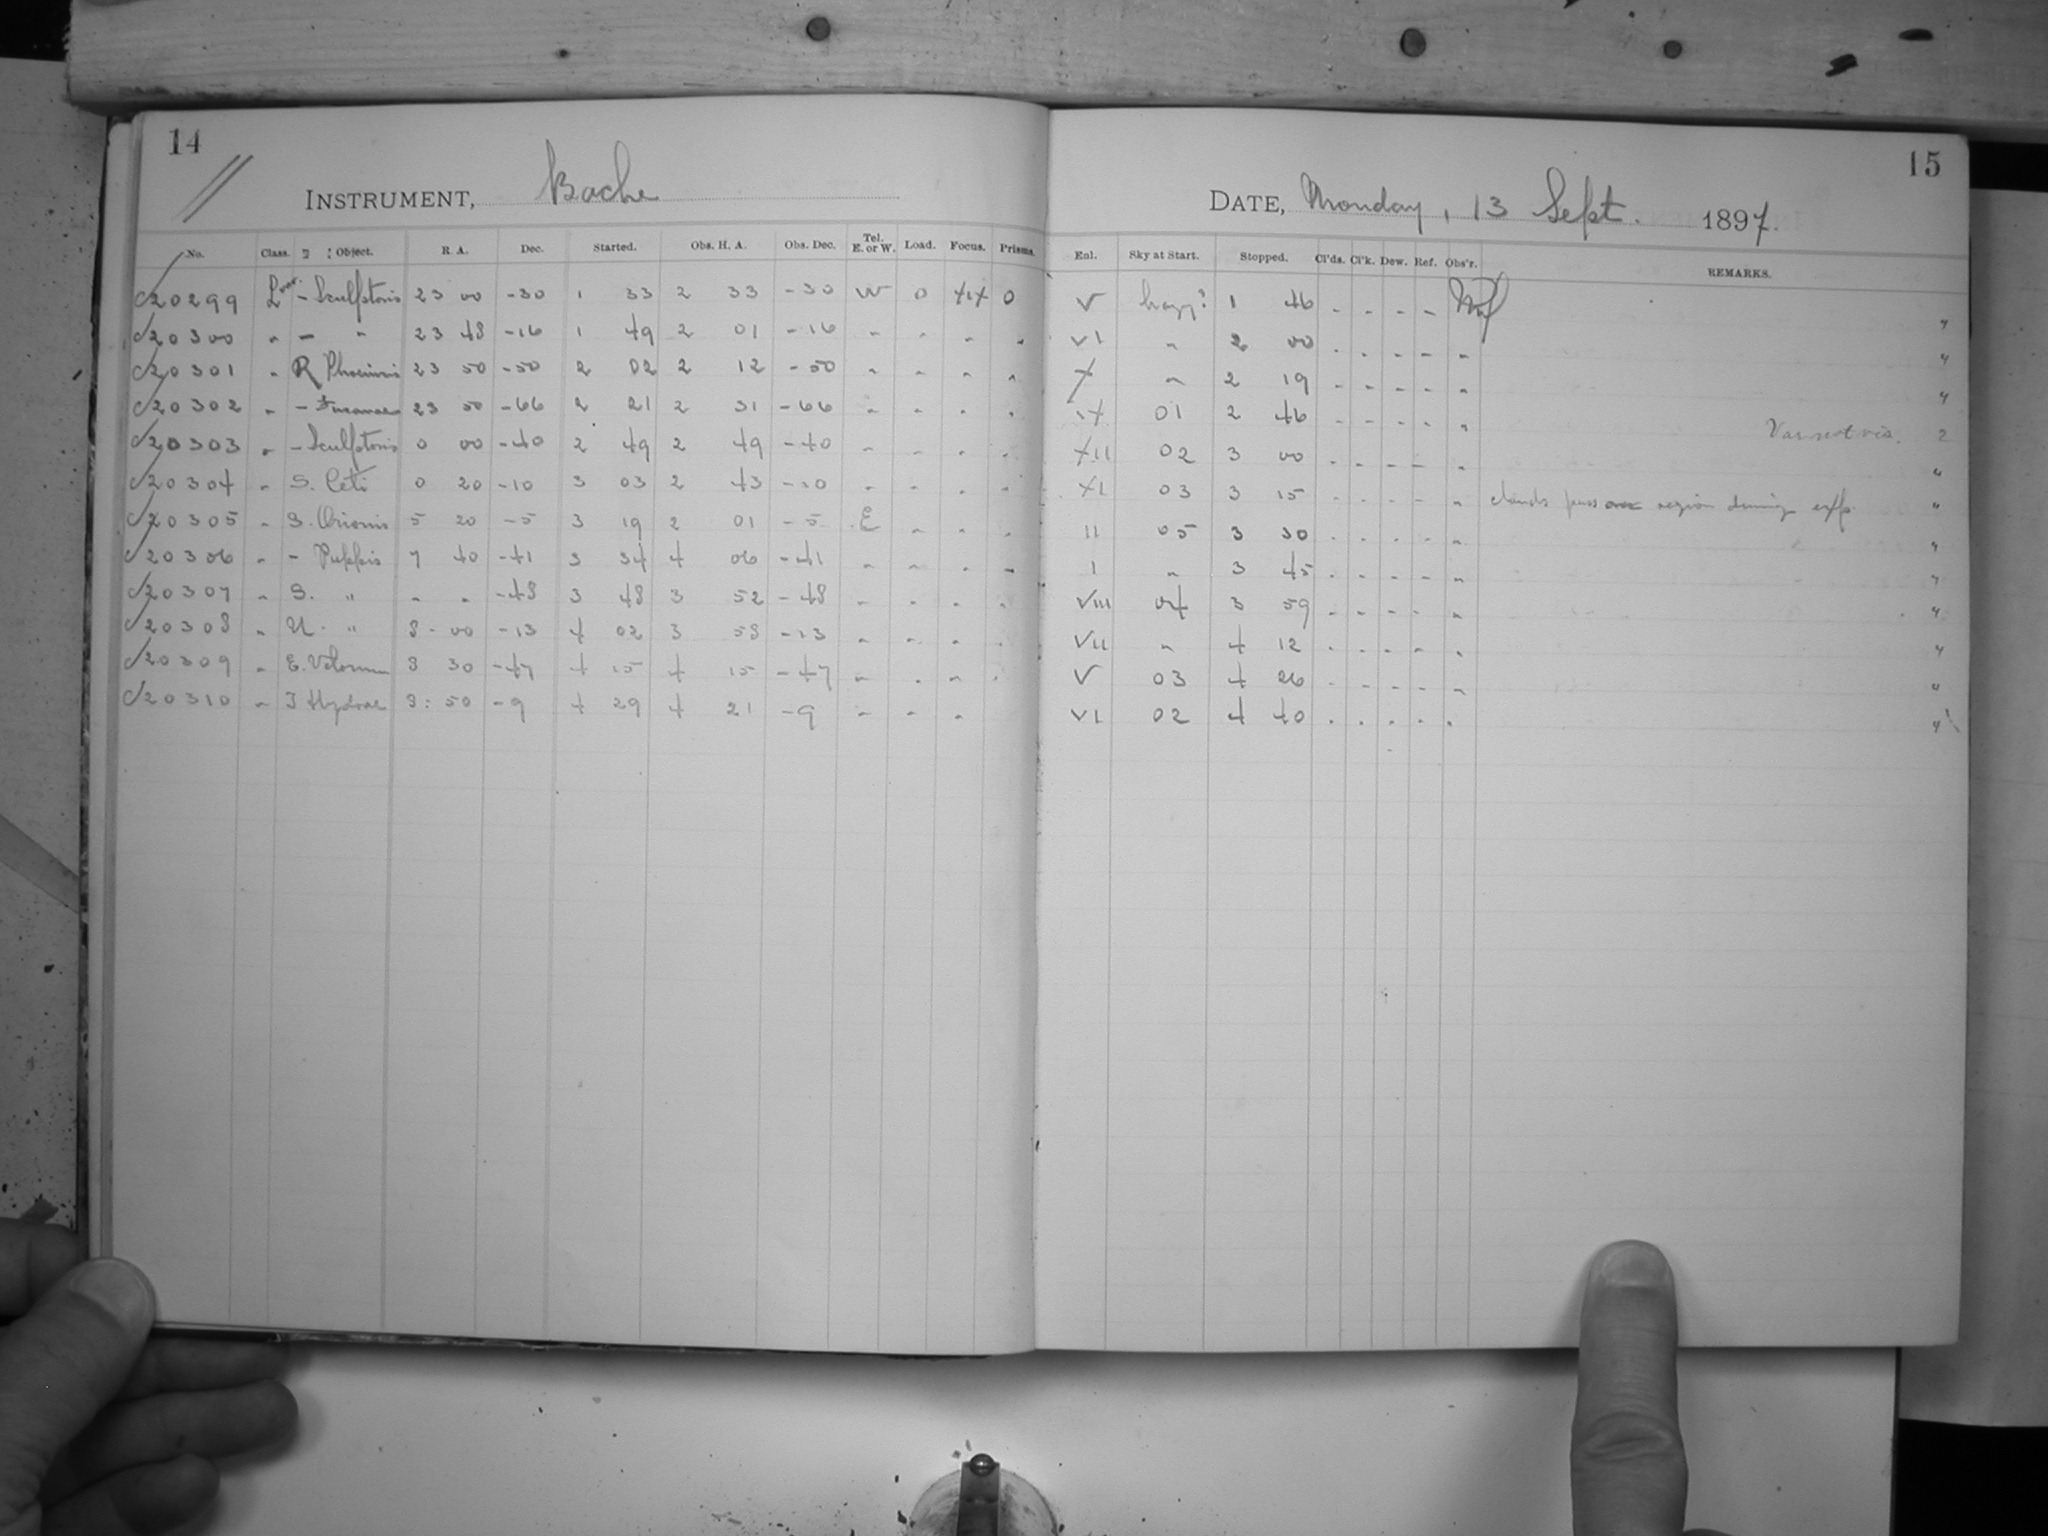 14
INSTRUMENT, Bache
No. Class. Object. R. A. Dec. Started. Obs. H. A. Obs. Dec. Tel. E. or W. Load. Focus. Prisms.
20299 L var. - Sculptoris 23 00 -30 1 33 2 33 -30 W 0 0
20300 " - " 23 48 -16 1 49 2 01 -16 " " " "
20301 " R Phoenicis 23 50 -50 2 02 2 12 -50 " " " "
20302 " - 23 50 -66 2 21 2 31 -66 " " " "
20303 " - Sculptoris 0 00 -40 2 49 2 49 -40 " " " "
20304 " S. Ceti 0 20 -10 3 03 2 43 -10 " " " "
20305 " S. Orionis 5 20 -5 3 19 2 01 -5 E " " "
20306 " - Puppis 7 40 -41 3 34 4 06 -41 " " " "
20307 " S. " " " -48 3 48 3 52 -48 " " " "
20308 " U. " 8 00 -13 4 02 3 58 -13 " " " "
20309 " E. Velorum 8 30 -47 4 15 4 15 -47 " " " "
20310 " T Hydrae 8:50 -9 4 29 4 21 -9 " " "
15
DATE, Monday, 13 Sept. 1897.
Enl. Sky at Start. Stopped. Cl'ds. Cl'k. Dew. Ref. Obs'r. REMARKS.
V hazy? 1 46 - - - - "
VI " 2 00 - - - - " "
X " 2 19 - - - - " "
IX 01 2 46 - - - - " Var not vis. 2
XII 02 3 00 - - - - " "
XI 03 3 15 - - - - " clouds pass over region during exp. "
II 05 3 30 - - - - " "
I " 3 45 - - - - " "
VIII 04 3 59 - - - - " "
VII " 4 12 - - - - " "
V 03 4 26 - - - - " "
VI 02 4 40 - - - - " "